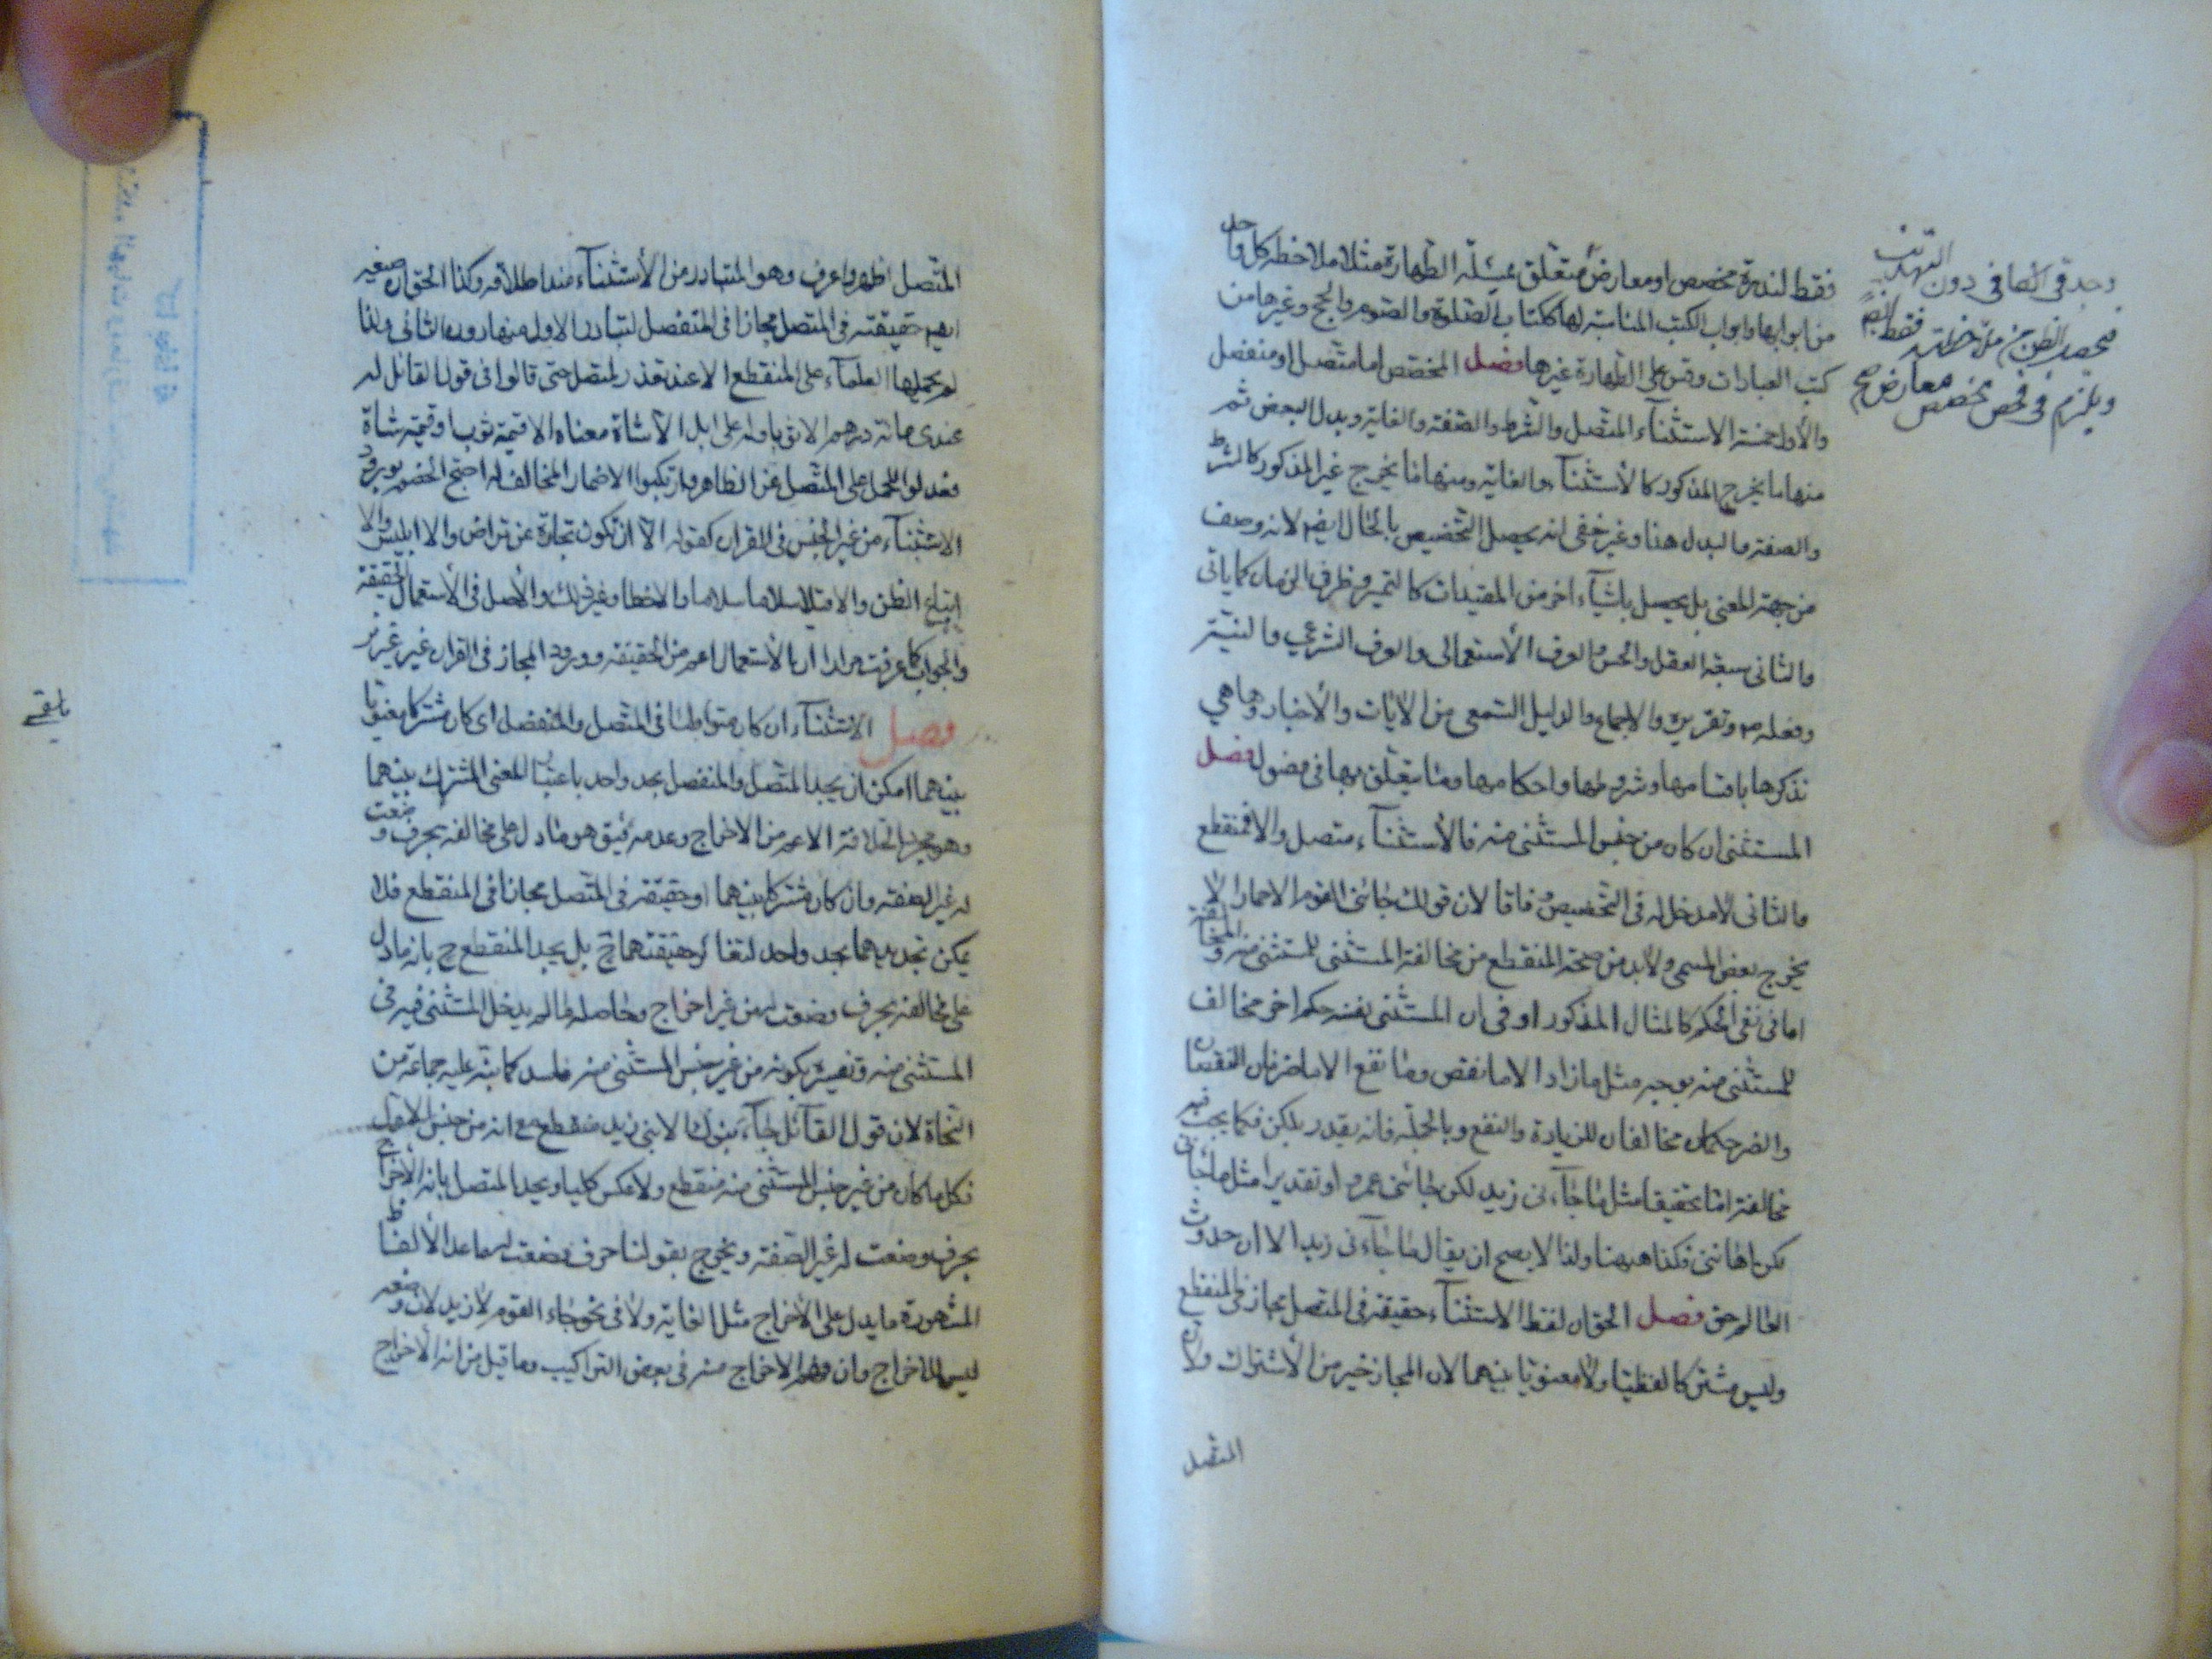 فقط لندرة مخصص او معارض متعلق بمسئلة الطهارة مثلا ملاحظه كل واحد
من ابوابها وابواب الكتب المناسبة لها ككتاب الصلوة والصوم والحج وغيرها من
كتب العبادات وقس على الطهارة غيرها فصل المخصص اما متصل او منفصل
والأول خمسة الاستثنآء المتصل والشرط والصفة والغاية وبدل البعض ثم
منها ما يخرج المذكور كالأستثنآء والغاية ومنها ما يخرج غير المذكور كالشرط
والصفة والبدل هنا وغير خفى انه يحصل التخصيص بالحال ايضا لانه وصف
من جهة المعنى بل يحصل باشيآء اخر من المقيدات كالتميز وظرف الزمان كما ياتى
والثانى سبعة العقل والحس والعرف الأستعمالى والعرف الشرعي والنية
وفعله م وتقريره والاجماع والدليل السمعى من الايات والأخبار وها هي
نذكرها باقسامها وشروطها واحكامها وما يتعلق بها فى فصول فصل
المستثنى ان كان من جنس المستثنى منه فالأستثنآء متصل والا فمنقطع
والثانى لا مدخل له فى التخصيص وفاقا لان قولك جائنى القوم الا حمارا لا
يخرج بعض المسمى ولا بد من صحة المنقطع من مخالفة المستثنى للمستثنى منه والمخالفة
اما فى نفى الحكم كالمثال المذكور او فى ان المستثنى نفسه حكم اخر مخالف
للمستثنى منه بوجه مثل ما زاد الا ما نقص وما نفع الا ما ضر فان النقصان
والضر حكمان مخالفان للزيادة والنفع وبالجملة فانه يقدر بلكن فكما يجب فيه
مخالفة اما تحقيقا مثل ما جآءنى زيد لكن جائنى عمرو او تقديرا مثل ما جائنى
لكن اهاننى فكذا ههنا ولذا لا يصح ان يقال ما جآءنى زيد الا ان حدوث
العالم حق فصل الحق ان لفظ الاستثنآء حقيقة فى المتصل مجاز فى المنقطع
وليس مشتركا لفظيا ولا معنويا بينهما لان المجاز خير من الأشتراك ولان
المتصل
وجد فى الكافى دون التهذيب
فيحصل الظن من ملاحظته فقط
ويلزم فى فحص مخصص معارض صح
المتصل اظهر واعرف وهو المتبادر من الأستثنآء عند اطلاقه وكذا الحق ان صيغه
ايضا حقيقة فى المتصل مجاز فى المنفصل لتبادر الاول منها دون الثانى ولذا
لم يحملها العلمآء على المنقطع الا عند تعذر المتصل حتى قالوا فى قول القائل له
عندى مائة درهم الا ثوبا وله على ابل الا شاة معناه الا قيمة ثوب او قيمة شاة
فعدلوا للحمل على المتصل عن الظاهر وارتكبوا الاضمار المخالف له احتج الخصم بورود
الاستثنآء من غير الجنس فى القران كقوله الا ان تكون تجارة عن تراض والا ابليس والا
اتباع الظن والا قيلا سلاما سلاما والا خطا وغير ذلك والأصل فى الأستعمال الحقيقة
والجواب كما عرفت مرارا ان الأستعمال اعم من الحقيقة وورود المجاز فى القران غير عزيز
فصل الاستثنآء ان كان متواطئا فى المتصل والمنفصل اى كان مشتركا معنويا
بينهما امكن ان يحد المتصل والمنفصل بحد واحد باعتبار المعنى المشترك بينهما
وهو مجرد المخالفة الاعم من الاخراج وعدمه فيق هو ما دل على مخالفة بحرف وضعت
له غير الصفة وان كان مشتركا بينهما او حقيقة فى المتصل مجازا فى المنقطع فلا
يمكن تحديدهما بحد واحد لتغاير حقيقتهما ح بل يحد المنقطع ح بانه ما دل
على مخالفة بحرف وضعت له من غير اخراج وحاصله ما لم يدخل المستثنى فيه فى
المستثنى منه وتفسيره بكونه من غير جنس المستثنى منه فاسد كما نبه عليه جماعة من
النحاة لان قول القآئل جآء بنوك الا بنى زيد منقطع مع انه من جنس الاول
فكل ما كان من غير جنس المستثنى منه منقطع ولا عكس كليا ويحد المتصل بانه الأخراج
بحرف وضعت له غير الصفة ويخرج بقولنا حرف وضعت له ما عدا الألفاظ
المشهورة مما يدل على الأخراج مثل الغاية ولا فى نحو جاء القوم لا زيد لان وضعه
ليس للاخراج وان فهم الاخراج منه فى بعض التراكيب وما قيل من انه الأخراج